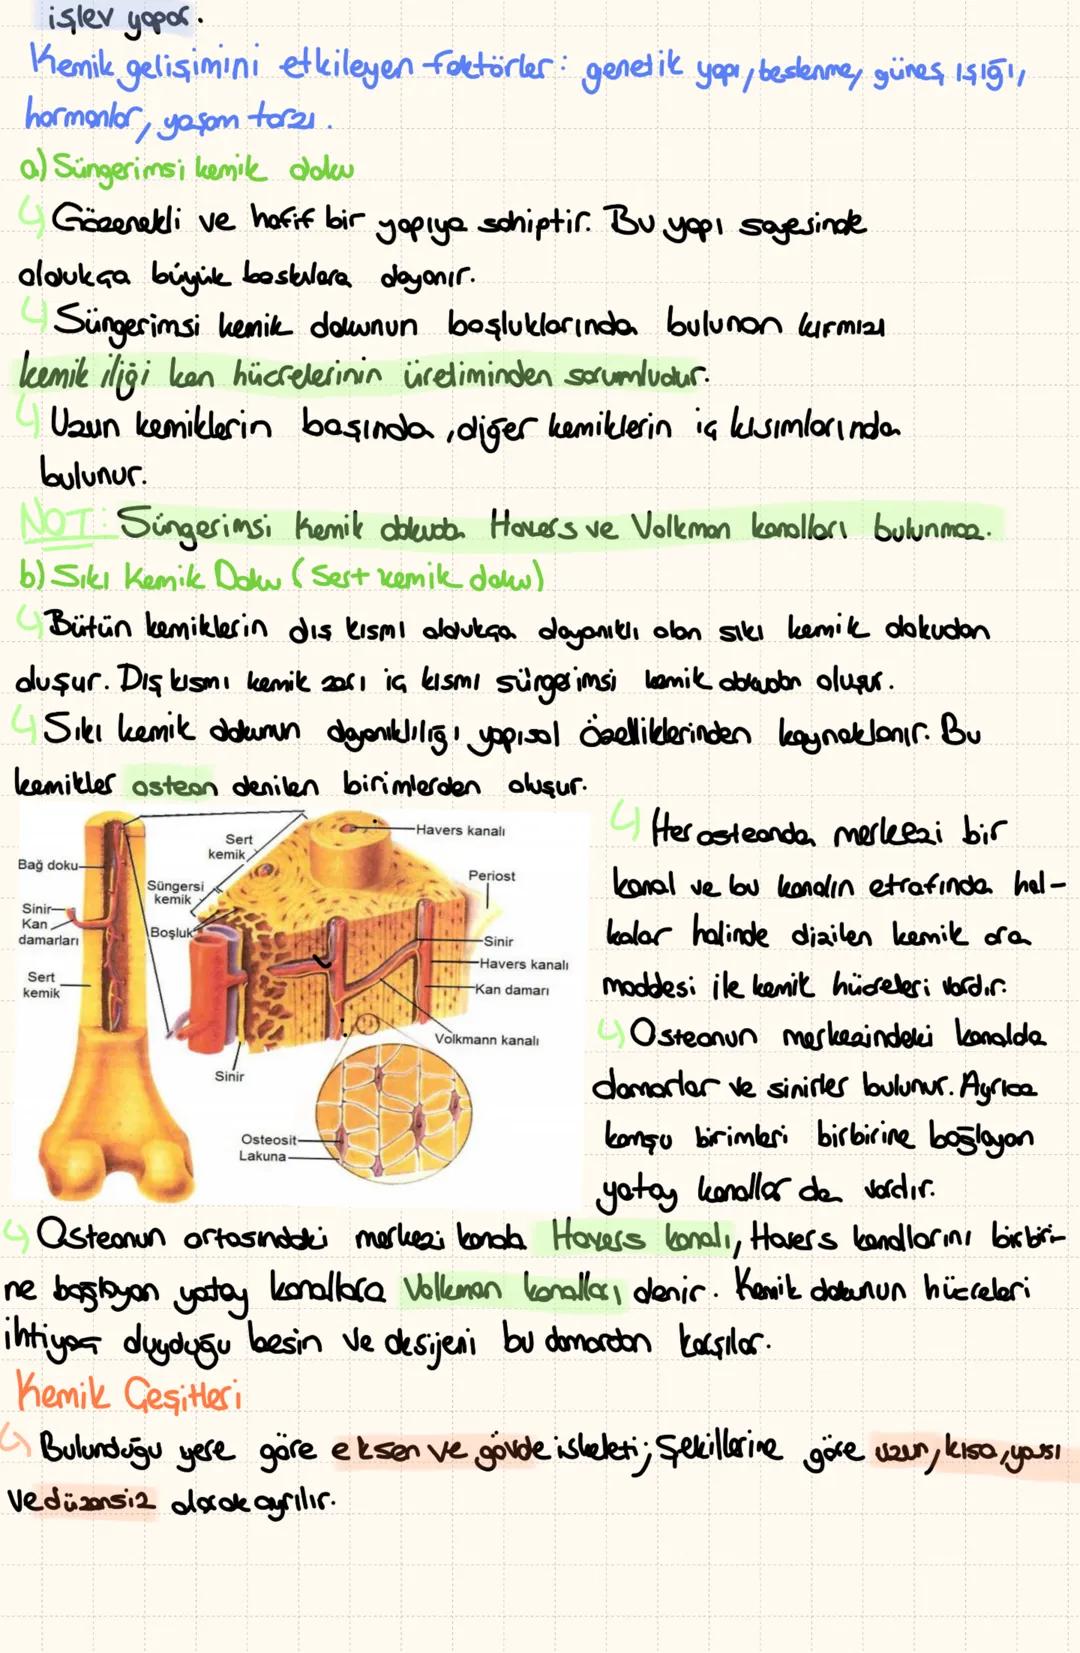 işlev yapar.
Kemik gelişimini etkileyen faktörler: genetik yapı, beslenme, güneş ışığı,
hormonlar, yaşam tarzı.
a) Süngerimsi kemik doku
Gözenekli ve hafif bir yapıya sahiptir. Bu yapı sayesinde
oldukça büyük baskılara dayanır.
Süngerimsi kemik dokunun boşluklarında bulunan kırmızı
kemik iliği kan hücrelerinin üretiminden sorumludur.
Uzun kemiklerin başında, diğer kemiklerin iç kısımlarında
bulunur.
NOT: Süngerimsi kemik dokuda Havers ve Volkman kanalları bulunmaz.
b) Sıkı Kemik Doku (Sert kemik doku)
Bütün kemiklerin dış kısmı oldukça dayanıklı olan sıkı kemik dokudan
oluşur. Dış kısmı kemik zarı iç kısmı süngerimsi kemik dokudan oluşur.
Sıkı kemik dokunun dayanıklılığı yapısal özelliklerinden kaynaklanır. Bu
kemikler osteon denilen birimlerden oluşur.
Havers kanalı
Sert
kemik
Bağ doku
Periost
Süngersi
kemik
Sinir
Kan
damarları
Boşluk
Sinir
Havers kanalı
Sert
kemik
Kan damarı
Volkmann kanalı
Sinir
Osteosit
Lakuna
Her osteonda merkezi bir
kanal ve bu kanalın etrafında hal-
kalar halinde dizilen kemik ara
maddesi ile kemik hücreleri vardır.
Osteonun merkezindeki kanalda
damarlar ve sinirler bulunur. Ayrıca
komşu birimleri birbirine bağlayan
yatay kanallar da vardır.
Osteonun ortasındaki merkezi kanala Havers kanalı, Havers kanallarını birbiri-
ne bağlayan yatay kanallara Volkman kanalları denir. Kemik dokunun hücreleri
ihtiyaç duyduğu besin ve oksijeni bu damardan karşılar.
Kemik Çeşitleri
Bulunduğu yere göre eksen ve gövde iskeleti; Şekillerine göre uzun, kısa, yassı
ve düzensiz olarak ayrılır.